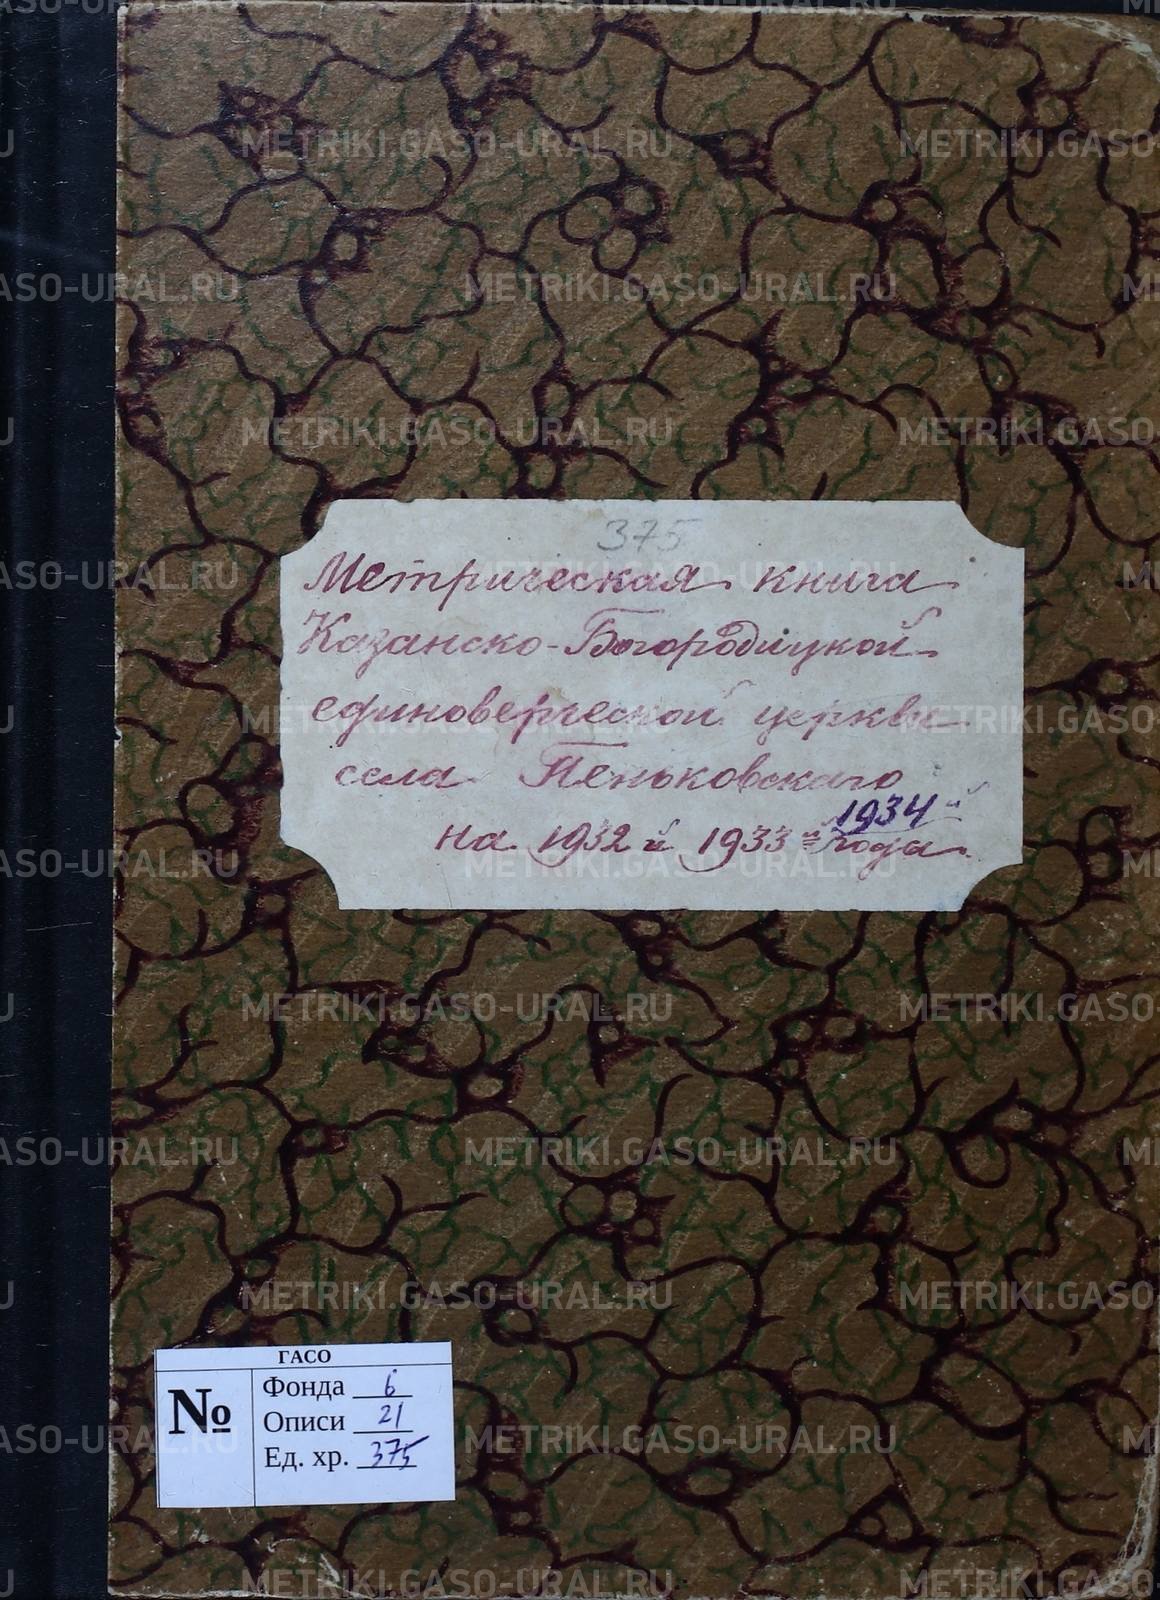 375
Метрическая книга
Казанско-Богородицкой
единоверческой церкви
села Пеньковскаго
1934й
на 1932й 1933й года.
ГАСО
№
Фонда 6
Описи 21
Ед. хр. 375
METRIKI.GASO-URAL.RU